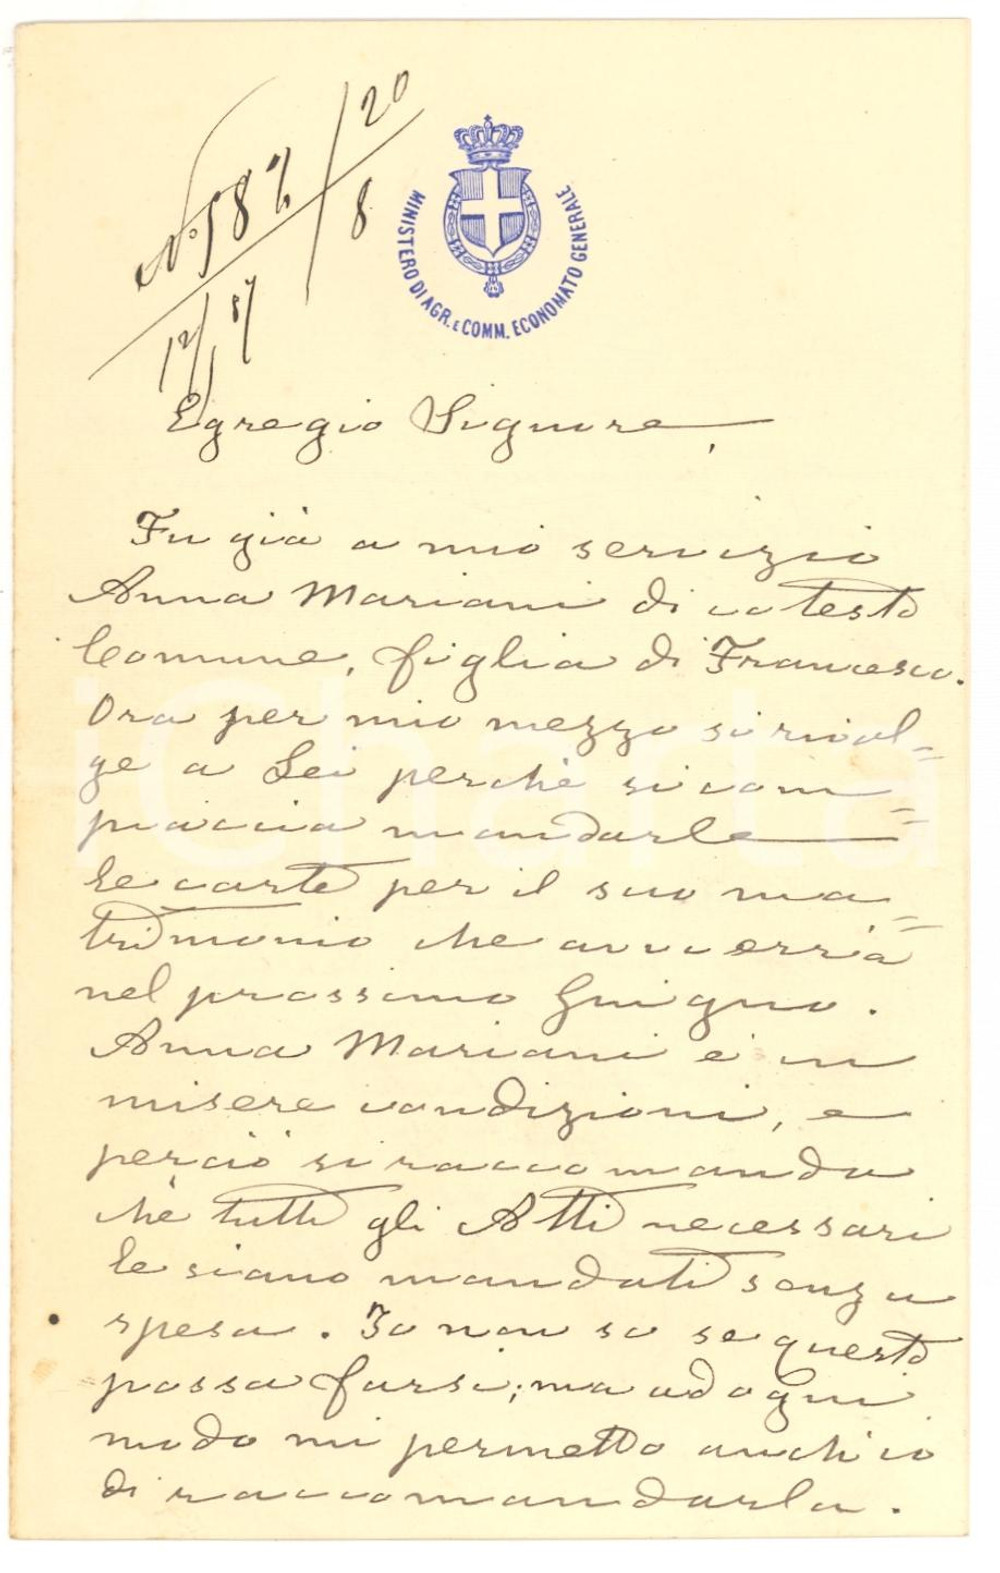 20
N° 587
8
12/5 87
MINISTERO DI AGR. E COMM. ECONOMATO GENERALE
Egregio Signore,
Fu già a mio servizio
Anna Mariani di cotesto
Comune, figlia di Francesco.
Ora per mio mezzo si rivol=
ge a Lei perchè si com=
piaccia mandarle
le carte per il suo ma=
trimonio che avverrà
nel prossimo Giugno.
Anna Mariani è in
misere condizioni, e
perciò si raccomanda
chè tutti gli Atti necessari
le siano mandati senza
spesa. Io non so se questo
possa farsi; ma ad ogni
modo mi permetto anch'io
di raccomandarla.
iCharta